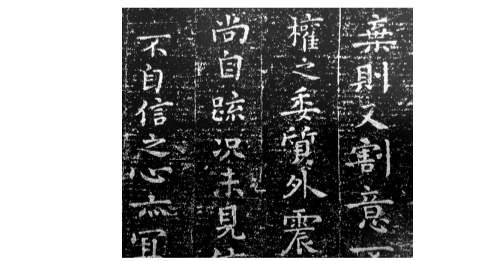 棄則又割意
權之委質外震
尚自疏況未見
不自信之心亦宜